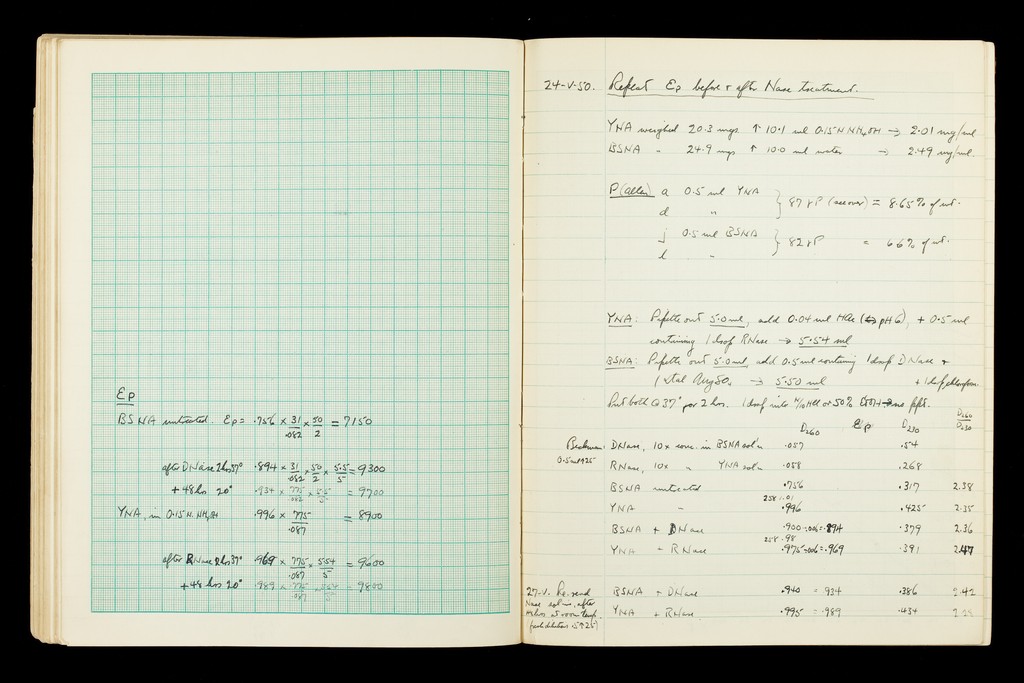 Ep
BSNA untreated. Ep = .756 × 31/.082 × 50/2 = 7150
after DNase 2hrs 37° .894 × 31/.082 × 50/2 × 5.5/5 = 9300
+ 48 hrs 20° .934 × 775/.082 × 5.5/5 = 9700
YNA, in 0.15 N. NH4OH .996 × 775/.087 = 8900
after RNase 2hrs 37° .969 × 775/.087 × 5.54/5 = 9600
+ 48 hrs 20° .989 × 775/.087 × 5.54/5 = 9800
24-V-50. Repeat Ep before + after Nase treatment.
YNA weighed 20.3 mgs ↑ 10.1 ml 0.15 N NH4OH → 2.01 mg/ml
BSNA " 24.9 mgs ↑ 10.0 ml water → 2.49 mg/ml.
P (Allen) a 0.5 ml YNA } 87 γP (see over) = 8.65% of wt.
d "
j 0.5 ml BSNA } 82 γP = 6.6% of wt.
l "
YNA: Pipette out 5.0 ml, add 0.04 ml HAc (→ pH 6), + 0.5 ml
containing 1 drop RNase → 5.54 ml
BSNA: Pipette out 5.0 ml, add 0.5 ml containing 1 drop DNase +
1 xtal MgSO4 → 5.50 ml + 1 drop chloroform
Put both @ 37° for 2 hrs. 1 drop into N/10 HCl or 50% → no ppt.
D260 Ep D230 D260/D230
Beckman: DNase, 10x conc. in BSNA sol'n .057 .54
0.5 ml ↑ 25 RNase, 10x " YNA sol'n .058 .268
BSNA untreated .756 .317 2.38
258 1.01
YNA " .996 .425 2.35
BSNA + DNase .900-.006=.894 .379 2.36
258 .98
YNA + RNase .975-.006=.969 .391 2.47
27-V. Re-read BSNA + DNase .940 = 934 .386 2.42
Nase sol'ns, after YNA + RNase .995 = .989 .434
48 hrs at room temp.
(each dilution .5↑25)